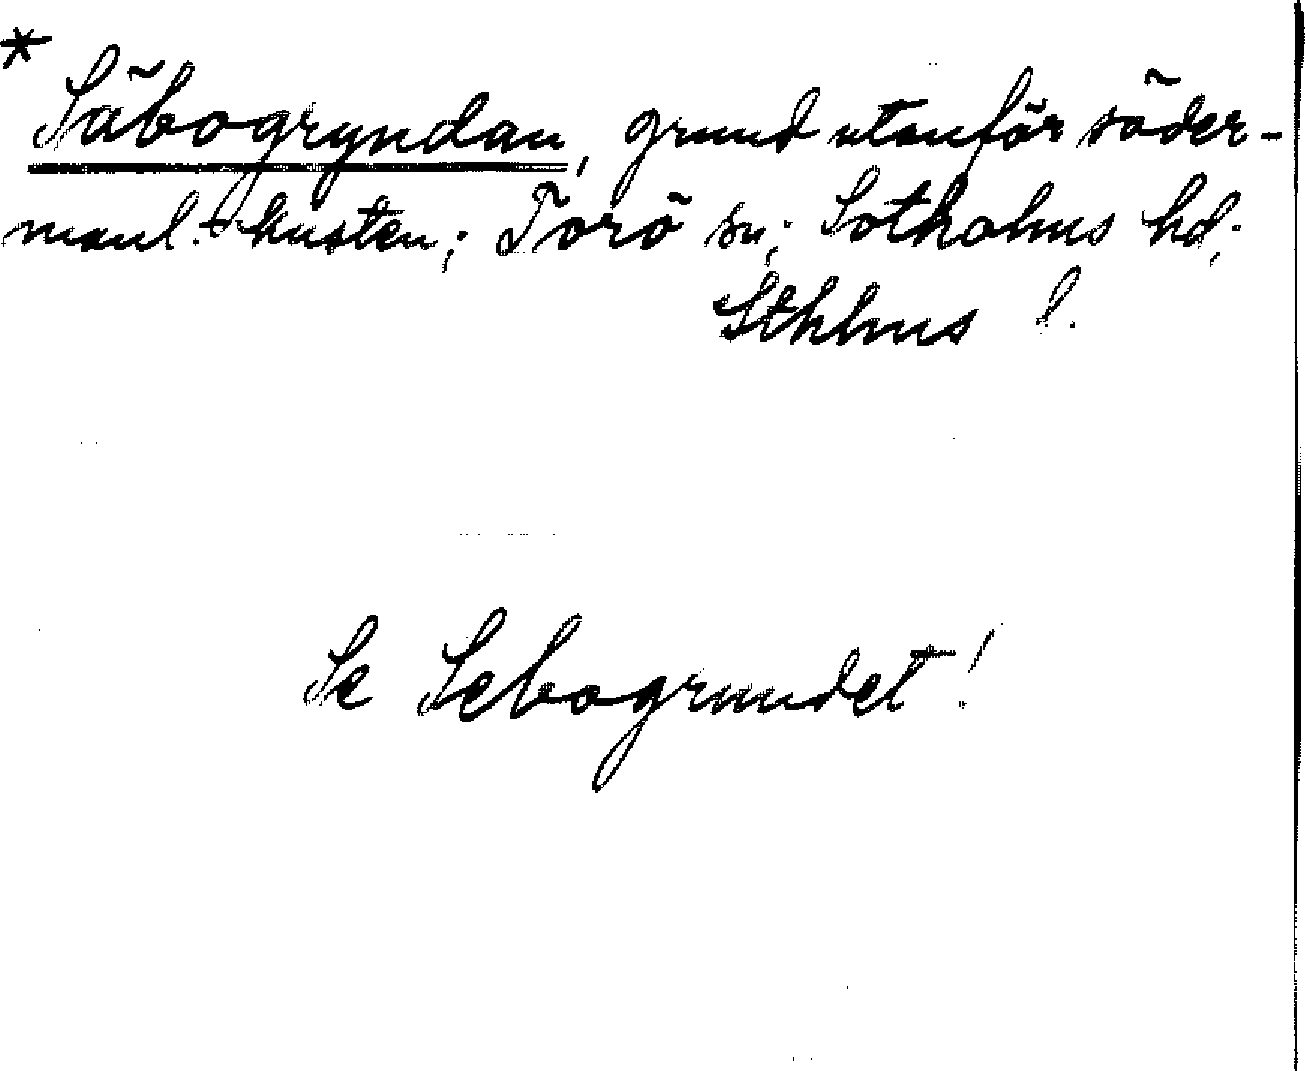 *
Säbogryndan, grund utanför söder-
manl.-kusten; Torö sn; Sotholms hd;
Sthlms l.
Se Sebogrundet!